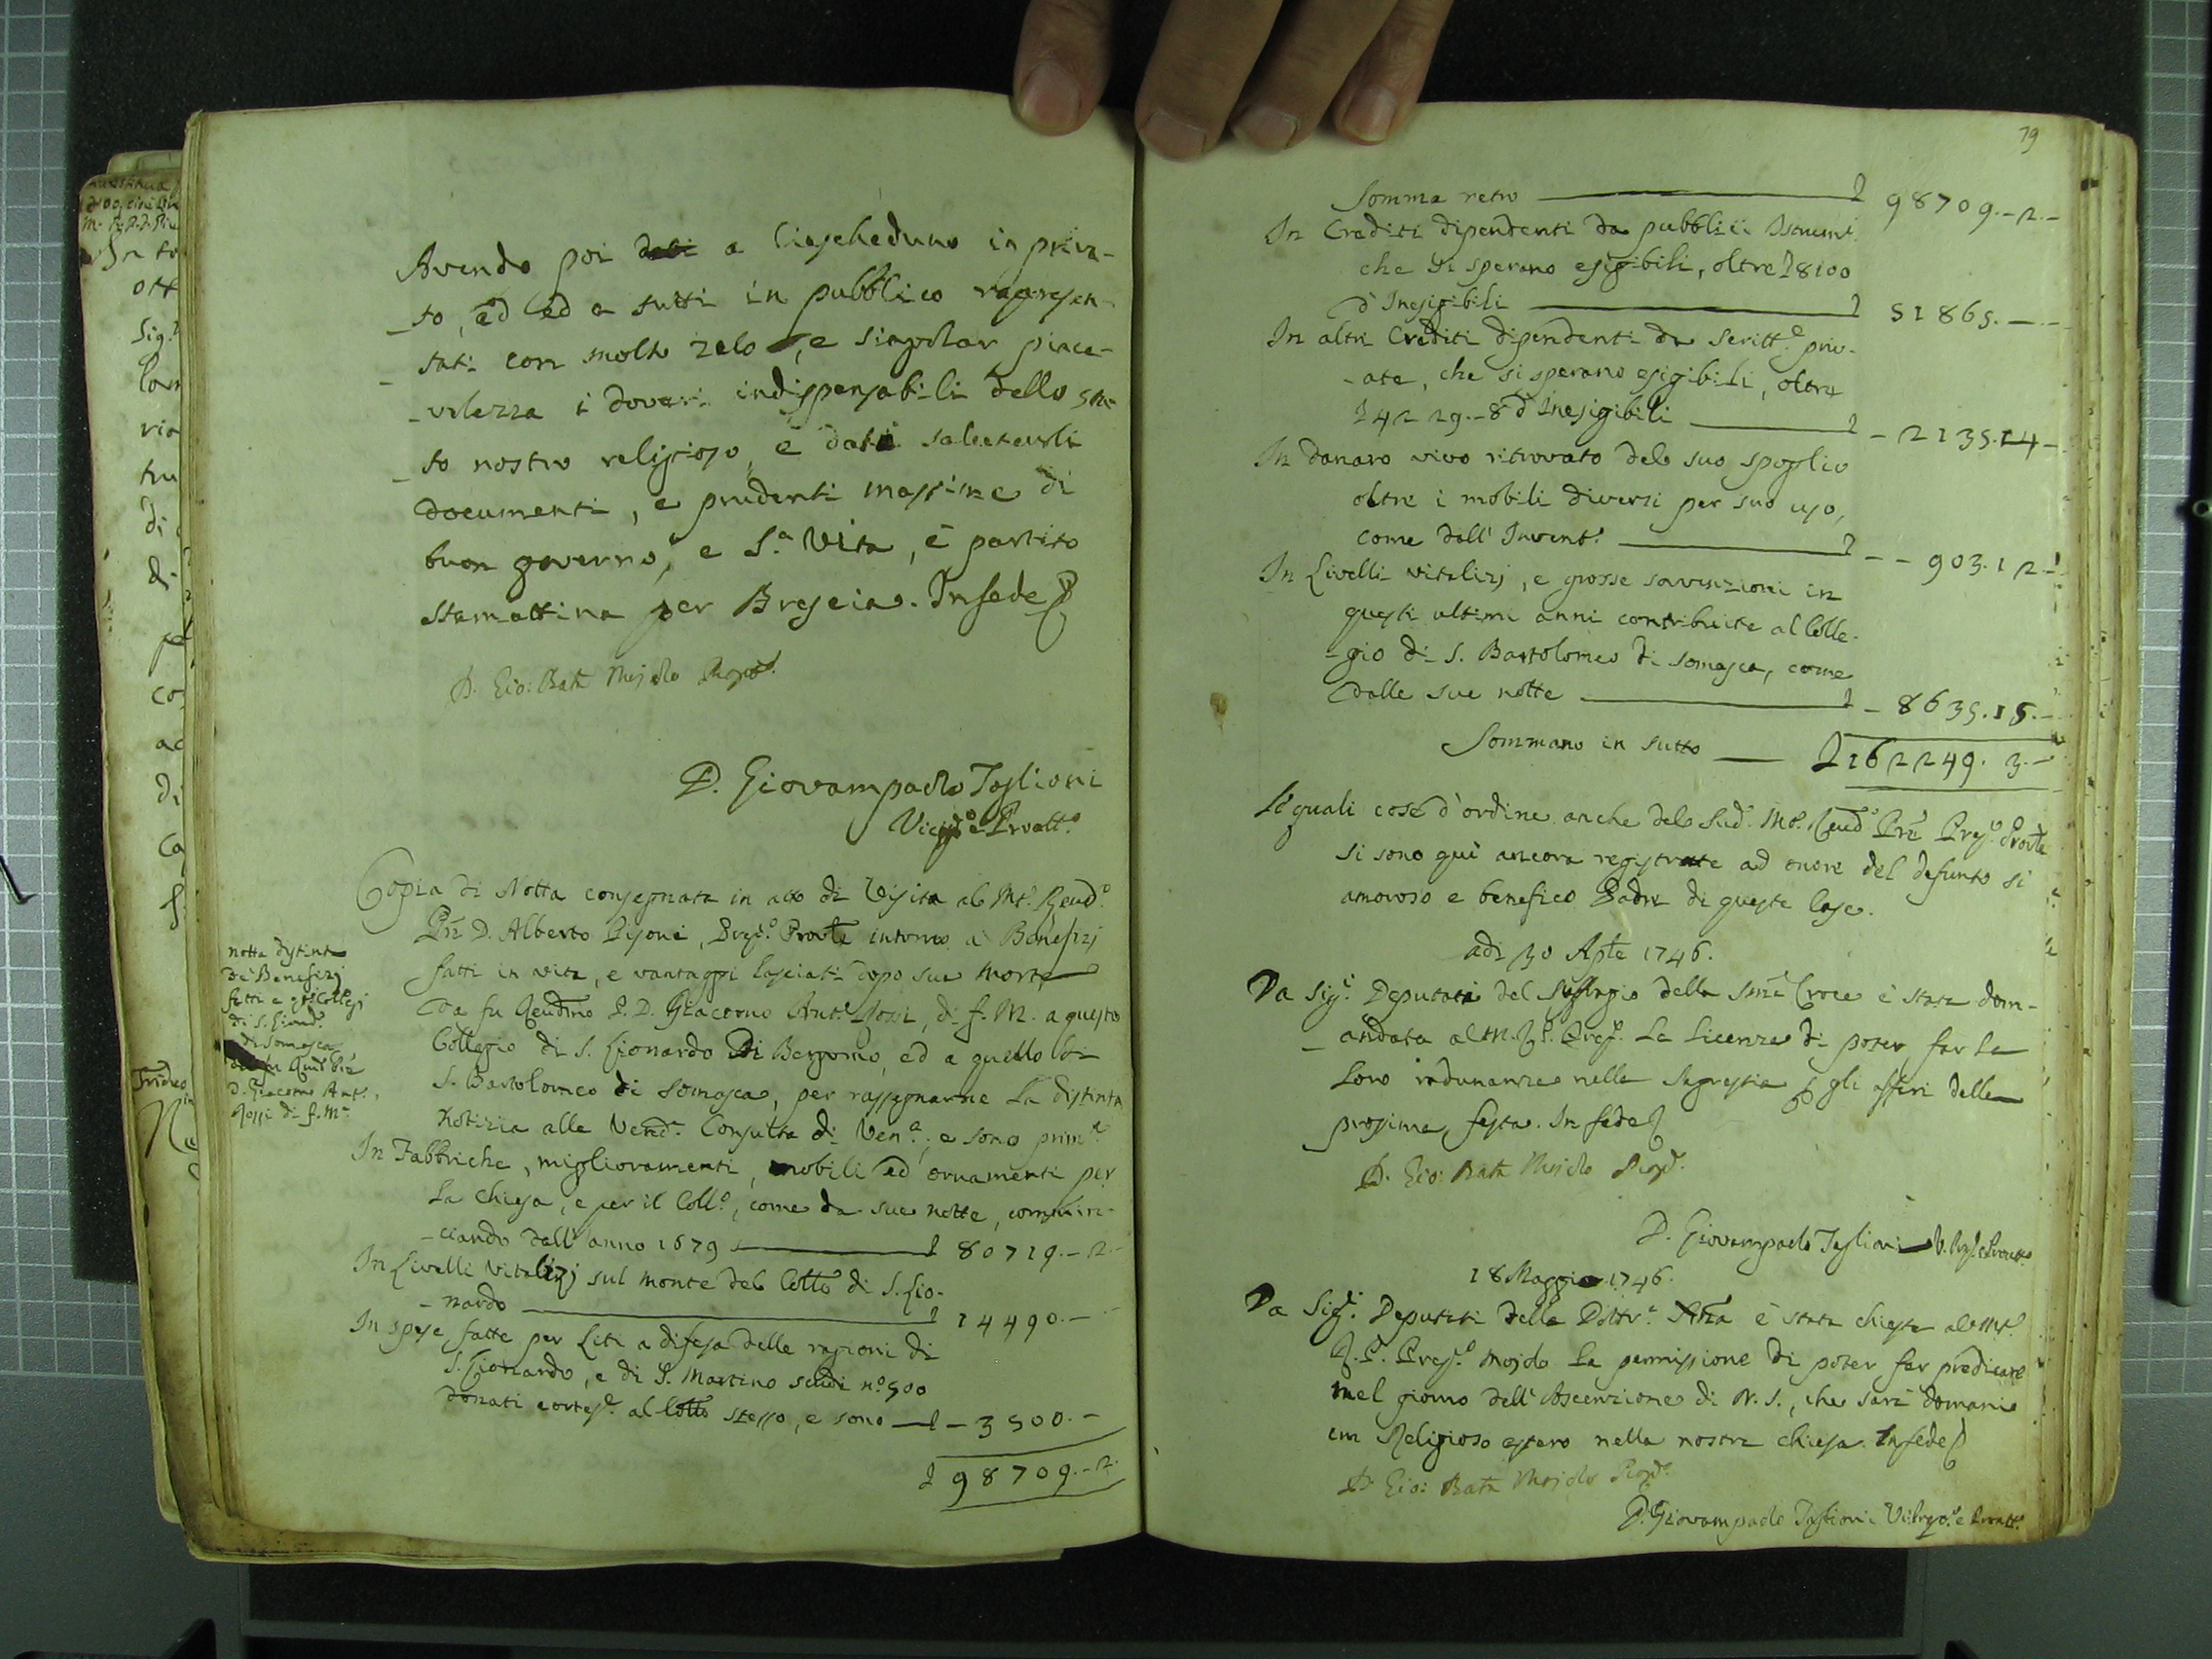 Avendo poi a ciascheduno in priva-
-to, ed ed a tutti in pubblico rappresen-
-tati con molto zelo, e singolar piace-
-volezza i doveri indispensabili dello sta-
-to nostro religioso, e dati salutevoli
documenti, e prudenti massime di
buon governo, e S.ª Vita, è partito
stamattina per Brescia. In fede
D. Gio: Batta Mojolo Prep.to
D. Giovampaolo Taglioni
Vicep.o e Proatt.o
Copia di Notta consegnata in atto di Visita al Mt.o Revd.o
Prē D. Alberto Pisoni, Prep.o Provle intorno a' Benefizj
fatti in vita, e vantaggi lasciati dopo sua morte
Da fu Revdmo P. D. Giacomo Ant.o Rossi, di f. M. a questo
Collegio di S. Lionardo Di Bergomo, ed a quello di
S. Bartolomeo di Somasca, per rassegnarne la distinta
notizia alla Vend.a Consulta di Ven.a; e sono prim.e
In Fabbriche, miglioramenti, mobili ed ornamenti per
la Chiesa, e per il Coll.o, come da sue notte, comin-
-ciando dall'anno 1679 80719.-2.-
In Livelli Vitalizj sul monte del Collo di S. Lio-
-nardo 14490.-
In spese fatte per Liti a difesa delle ragioni di
S. Lionardo, e di S. Martino scudi n.o 500
donati cortes.e al Collo stesso, e sono - 3500.-
98709.-2.
notta distinta
de' Benefizj
fatti a gli Collegj
di S. Liond.o
di Somasca
Revd Prē
D. Giacomo Ant.o
Rossi di f. M.a
79
Somma retro 98709.-2.-
In Crediti dipendenti da pubblici Istrumi
che si sperano esigibili, oltre 18100
d'Inesigibili 51865.-
In altri Crediti dipendenti da Scritt.e priv-
-ate, che si sperano esigibili, oltre
14229.-8 d'Inesigibili - 2135.14-
In danaro vivo ritrovato del suo spoglio
oltre i mobili diversi per suo uso,
come dall'Invent.o - - 903.12.-
In Livelli vitalizj, e grosse sovvenzioni in
questi ultimi anni contribuite al Colle-
-gio di S. Bartolomeo di Somasca, come
dalle sue notte - 8635.15.-
Sommano in tutto 162249. 3.-
Le quali cose d'ordine anche del Sud.o Mo. Revd.o Prē Prep.o Provle
si sono quì ancora registrate ad onore del defunto sì
amoroso e benefico Padre di queste Case.
adì 30 Aple 1746.
Da Sig.i Deputati del Suffragio della Smā Croce è stata dom-
-andata al M. R. P. Prep.o la licenza di poter far la
loro radunanza nella Sagrestia p gli affari della
prossima festa. In fede
D. Gio: Batta Mojolo Prep.o
D. Giovampaolo Taglioni V. Prep.o e Proatto.
18 Maggio 1746.
Da Sig.i Deputati della Dottr.a Xna è stata chiesta al Mt.o
R. P. Prep.o Mojolo la permissione di poter far predicare
nel giorno dell'Ascenzione di N. S., che sarà domani
un Religioso estero nella nostra Chiesa. In fede
D. Gio: Batta Mojolo Prep.o
D. Giovampaolo Taglioni Vi: Prep.o e Proatt.o